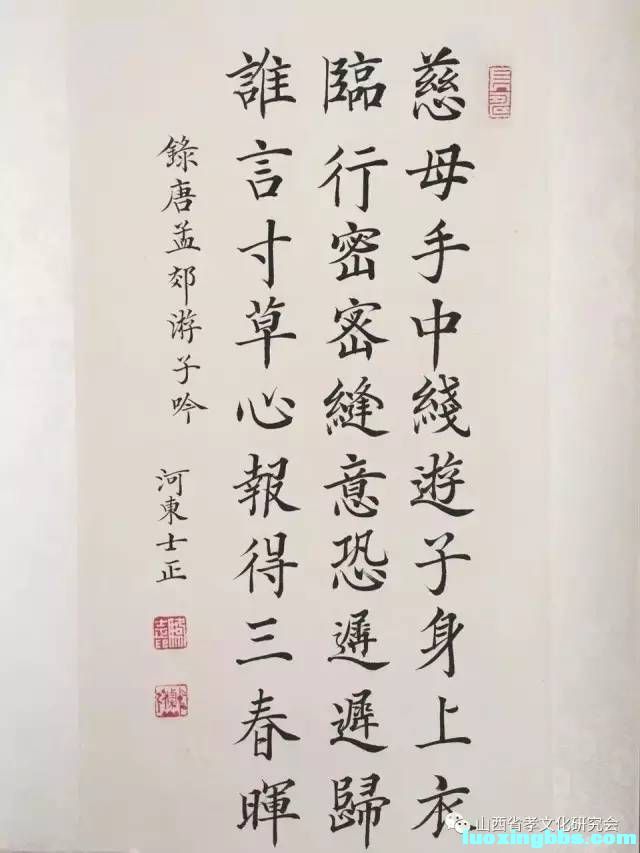 慈母手中綫遊子身上衣
臨行密密縫意恐遲遲歸
誰言寸草心報得三春暉
錄唐孟郊游子吟 河東士正
山西省孝文化研究会
luoxingbbs.com